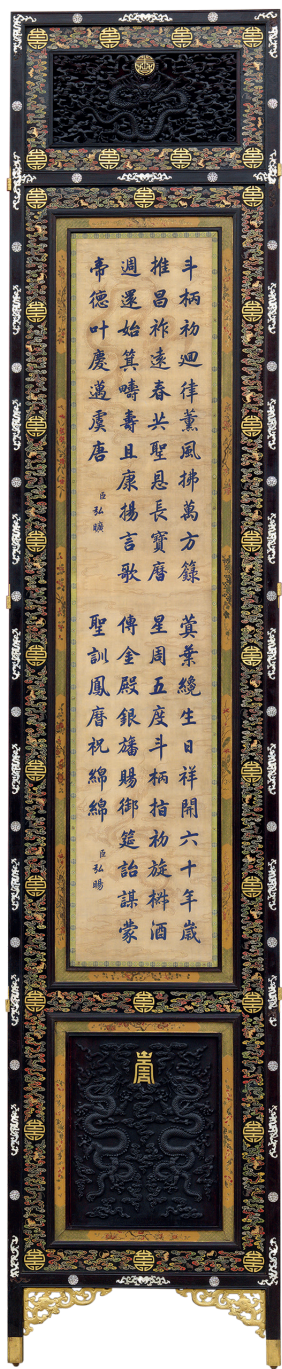 斗柄初廻律薰風拂萬方籙
推昌祚遠春共聖恩長寶曆
週還始箕疇壽且康揚言歌
帝德叶慶邁虞唐
臣弘曠
蓂葉纔生日祥開六十年歲
星周五度斗柄指初旋椒酒
傳金殿銀旛賜御筵詒謀蒙
聖訓鳳曆祝綿綿
臣弘暘